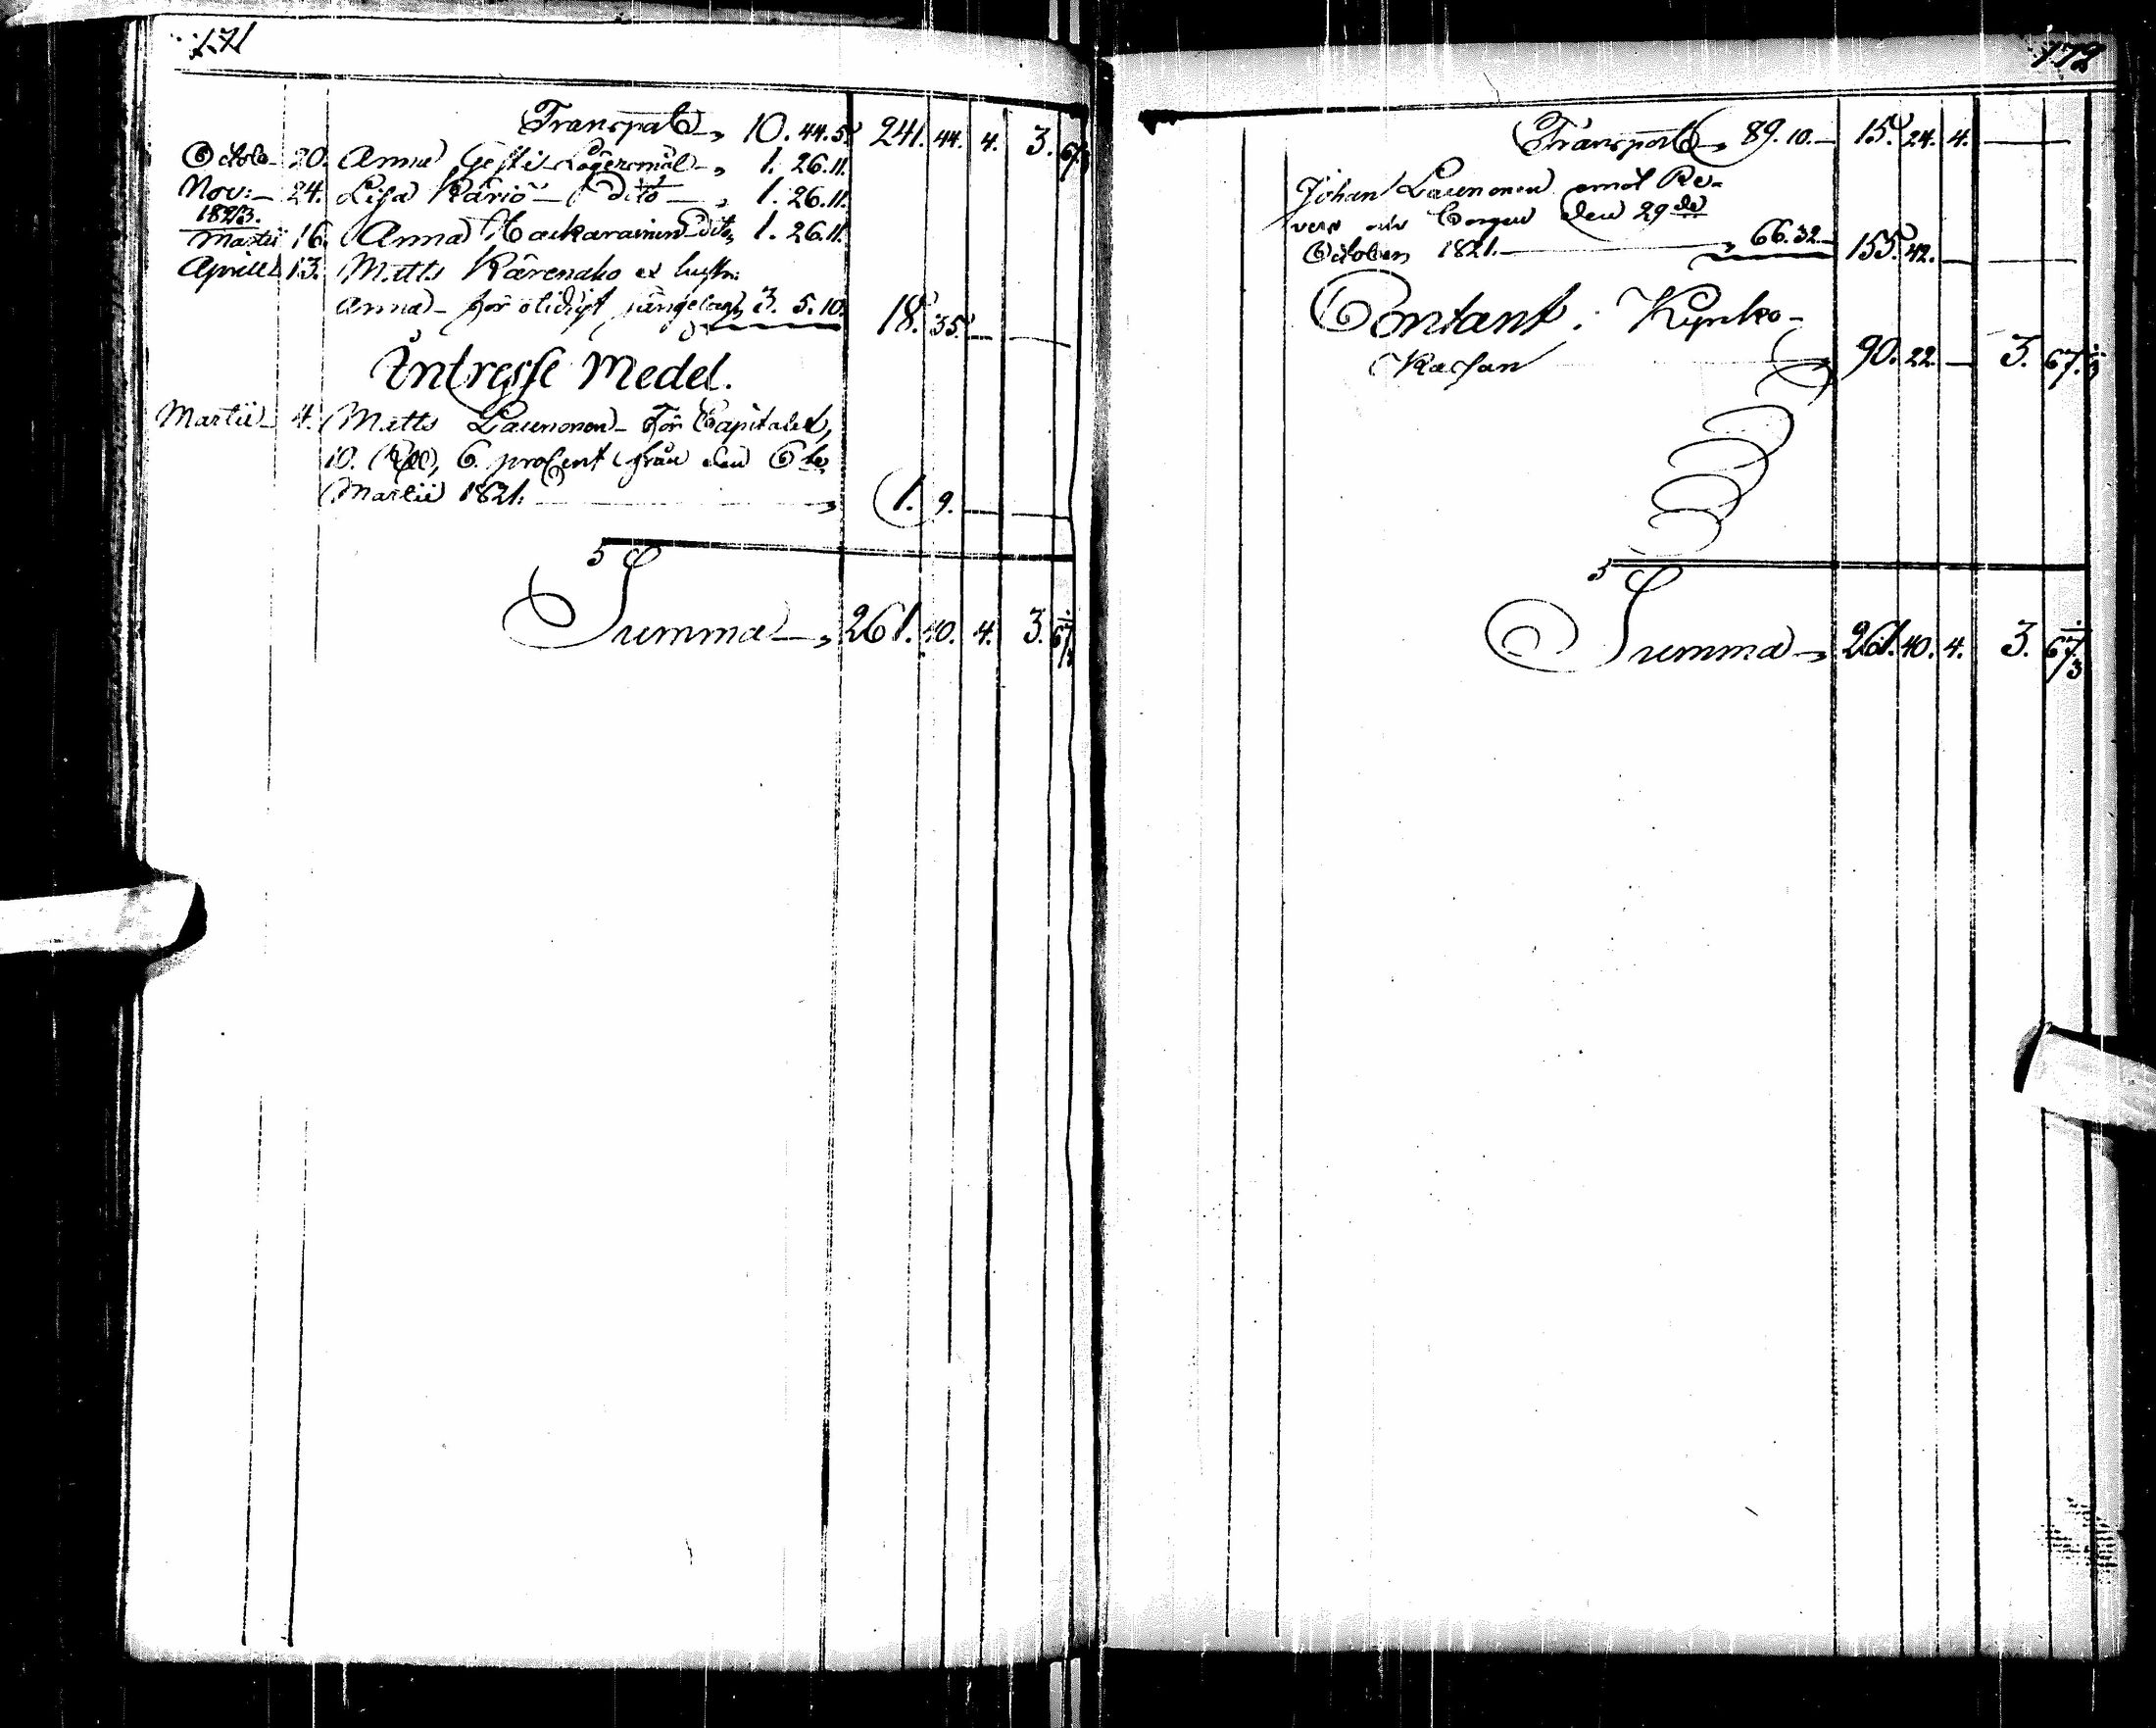 171
Transport 10. 44. 5. 241. 44. 4. 3. 67/3
Octob 20. Anna Gesti Lägersmål 1. 26. 11.
Nov: 24. Lisa Käriö dito 1. 26. 11.
1823.
Martii 16. Anna dito 1. 26. 11.
Aprill 13. Matts ex hustr:
Anna för otidigt 3. 5. 10. 18. 35.
Intresse Medel.
Martii 4. Matts Launonen för Capitalet,
10. 6. procent från den 6te
Martii 1821. 1. 9.
Summa 261. 40. 4. 3. 67/3
172
Transport 89. 10. 15. 24. 4.
Johan Launonen emot Re-
vers och Borgen den 29de
October 1821. 66. 32. 155. 42.
Contant i Kyrko-
Kassan 90. 22. 3. 67/3
Summa 261. 40. 4. 3. 67/3